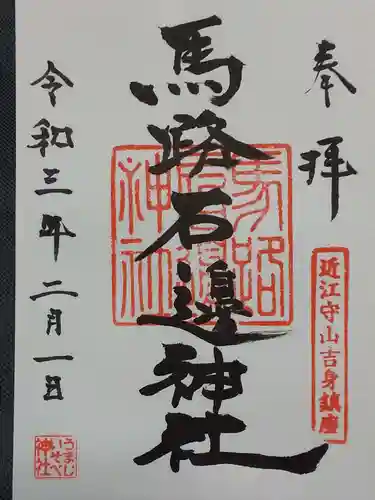 奉拝
近江守山吉身鎮座
馬路石邊神社
馬路石邊神社
令和三年二月一日
うまじ
いそべ
神社